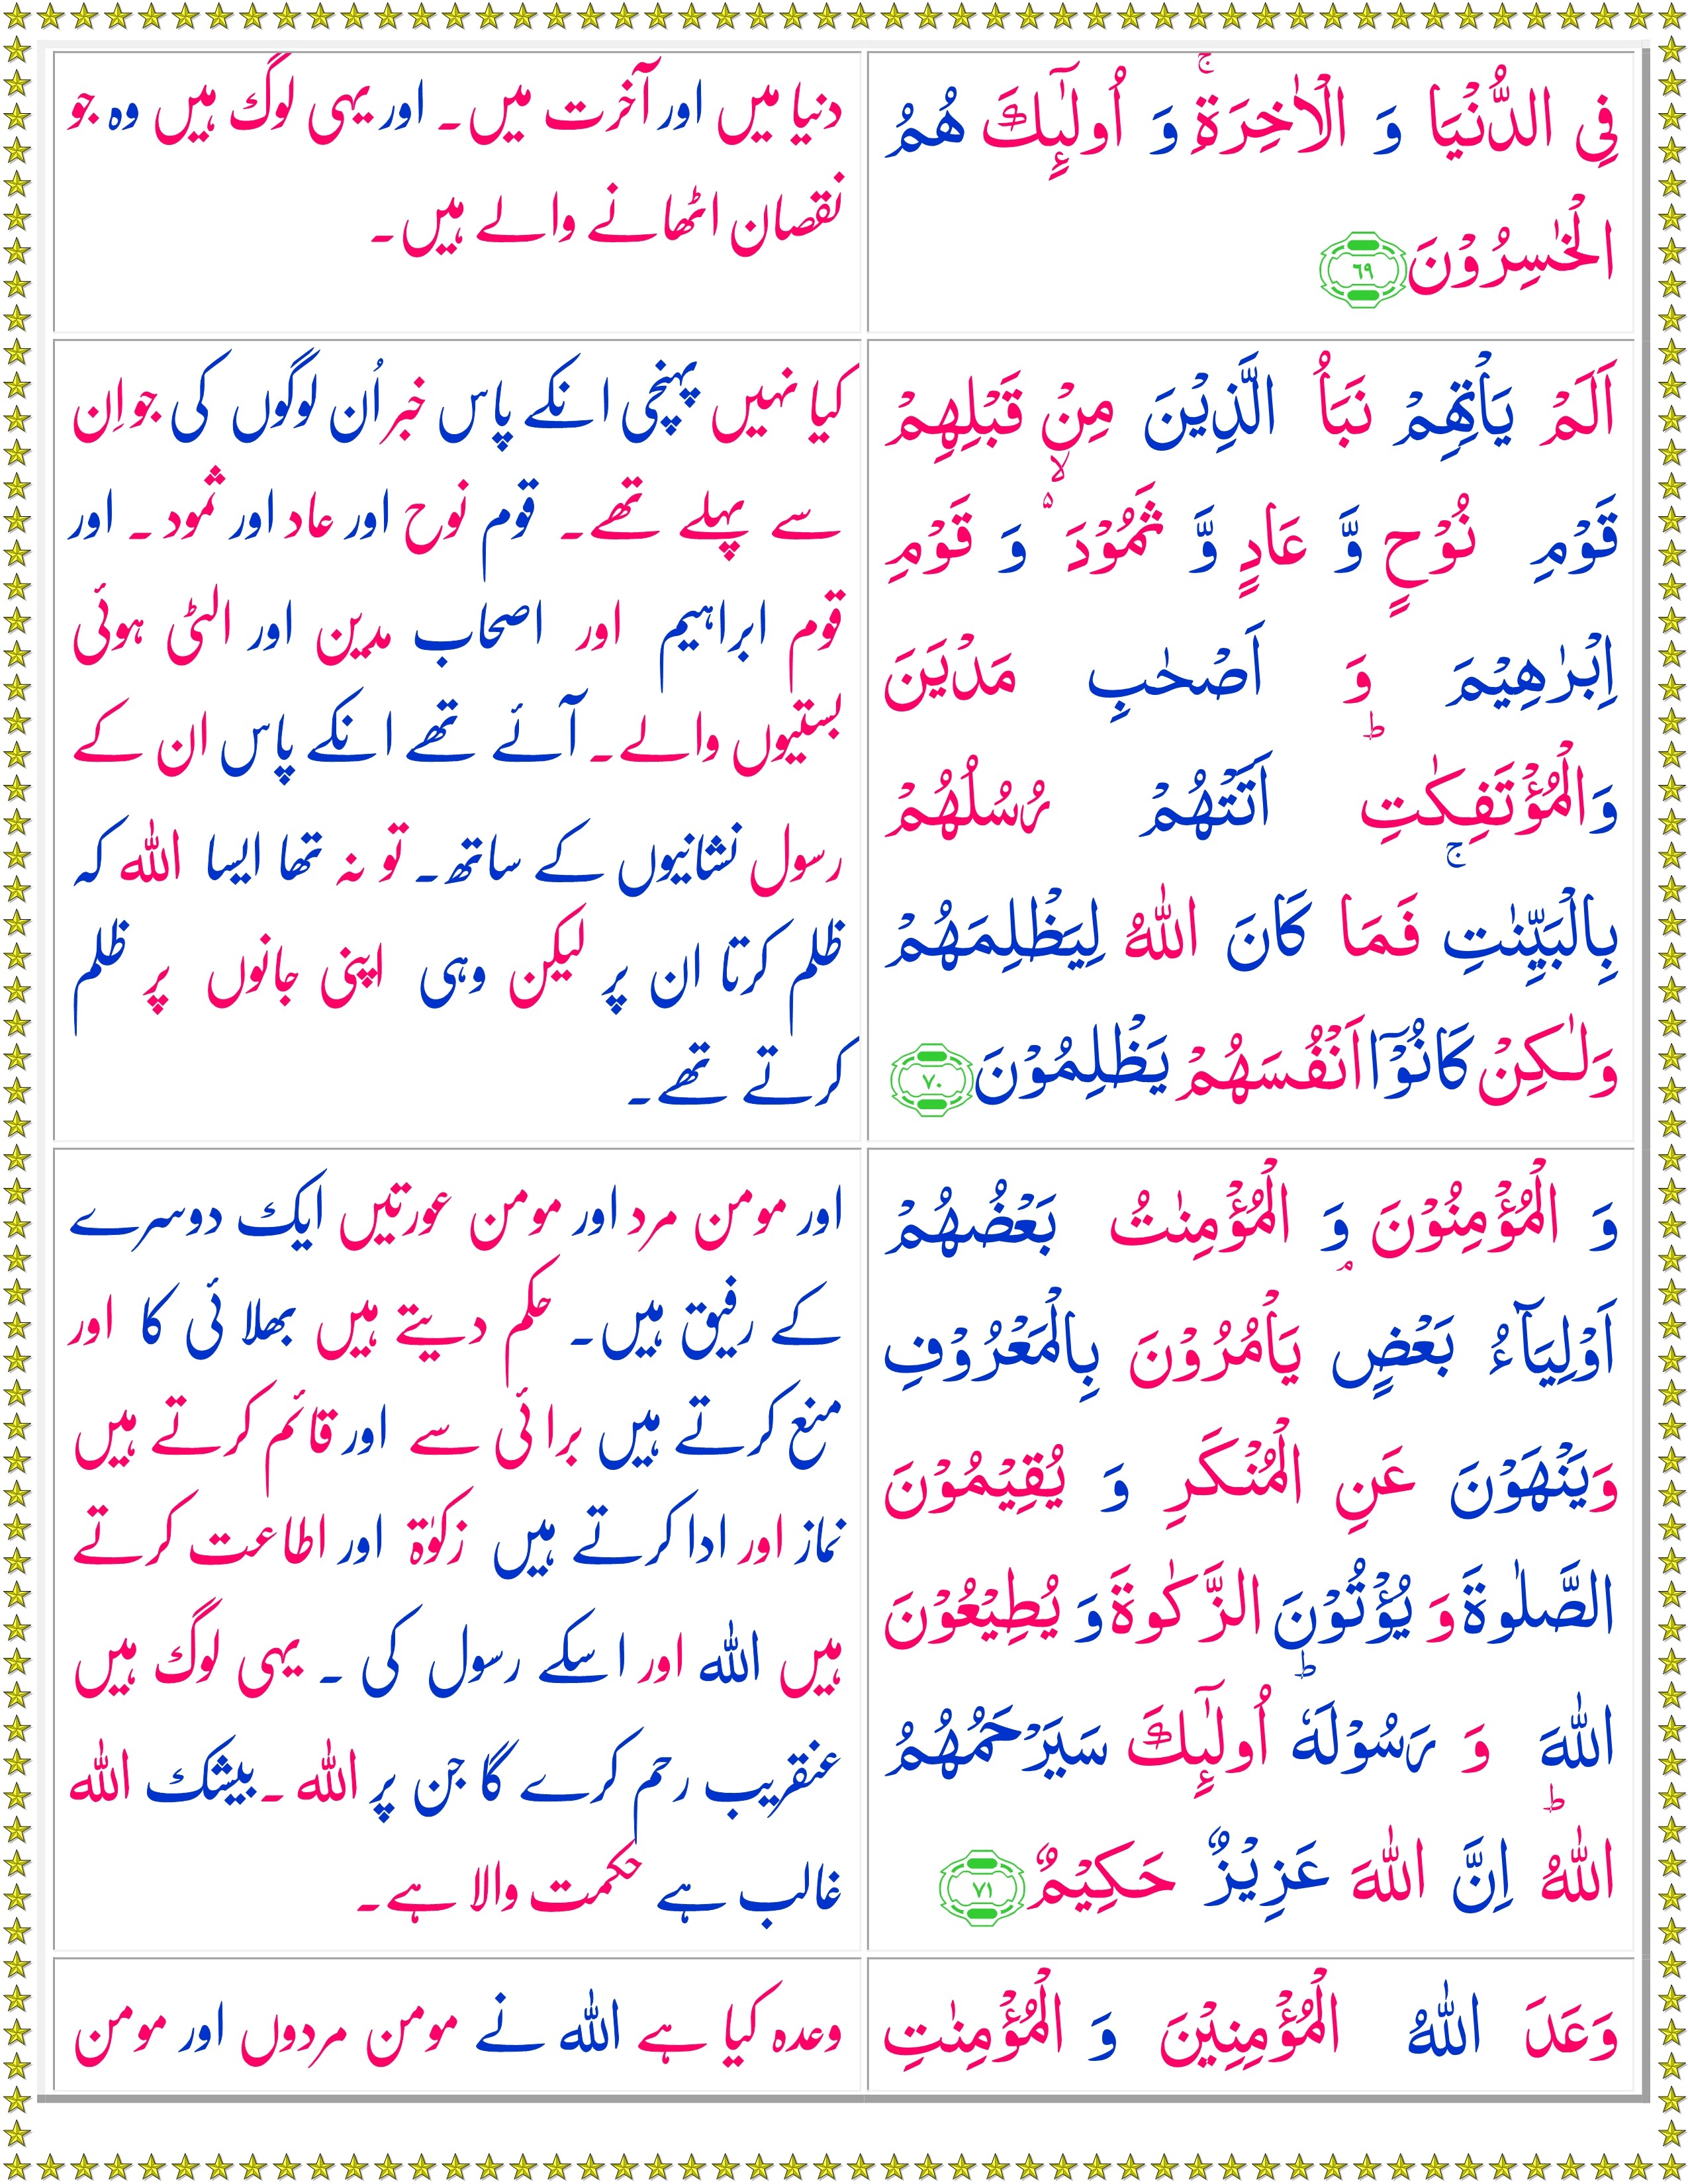 فِى الدُّنْيَا وَ الْاٰخِرَةِ ۚ وَ اُولٰٓئِكَ هُمُ
الْخٰسِرُوْنَ ﴿۶۹﴾
دنیا میں اور آخرت میں۔ اور یہی لوگ ہیں وہ جو
نقصان اٹھانے والے ہیں۔
اَلَمْ يَاْتِهِمْ نَبَاُ الَّذِيْنَ مِنْ قَبْلِهِمْ
قَوْمِ نُوْحٍ وَّ عَادٍ وَّ ثَمُوْدَ ۙ۬ وَ قَوْمِ
اِبْرٰهِيْمَ وَ اَصْحٰبِ مَدْيَنَ
وَالْمُؤْتَفِكٰتِ ؕ اَتَتْهُمْ رُسُلُهُمْ
بِالْبَيِّنٰتِ ۚ فَمَا كَانَ اللّٰهُ لِيَظْلِمَهُمْ
وَلٰـكِنْ كَانُوْۤا اَنْفُسَهُمْ يَظْلِمُوْنَ ﴿۷۰﴾
کیا نہیں پہنچی انکے پاس خبر اُن لوگوں کی جو اِن
سے پہلے تھے۔ قوم نوح اور عاد اور ثمود ۔ اور
قوم ابراہیم اور اصحاب مدین اور الٹی ہوئی
بستیوں والے۔ آئے تھے انکے پاس ان کے
رسول نشانیوں کے ساتھ۔ تو نہ تھا ایسا اللہ کہ
ظلم کرتا ان پر لیکن وہی اپنی جانوں پر ظلم
کرتے تھے۔
وَ الْمُؤْمِنُوْنَ وَ الْمُؤْمِنٰتُ بَعْضُهُمْ
اَوْلِيَآءُ بَعْضٍ ۘ يَاْمُرُوْنَ بِالْمَعْرُوْفِ
وَيَنْهَوْنَ عَنِ الْمُنْكَرِ وَ يُقِيْمُوْنَ
الصَّلٰوةَ وَ يُؤْتُوْنَ الزَّكٰوةَ وَ يُطِيْعُوْنَ
اللّٰهَ وَ رَسُوْلَهٗ ؕ اُولٰٓئِكَ سَيَرْحَمُهُمُ
اللّٰهُ ؕ اِنَّ اللّٰهَ عَزِيْزٌ حَكِيْمٌ ﴿۷۱﴾
اور مومن مرد اور مومن عورتیں ایک دوسرے
کے رفیق ہیں۔ حکم دیتے ہیں بھلائی کا اور
منع کرتے ہیں برائی سے اور قائم کرتے ہیں
نماز اور ادا کرتے ہیں زکوٰۃ اور اطاعت کرتے
ہیں اللہ اور اسکے رسول کی ۔ یہی لوگ ہیں
عنقریب رحم کرے گا جن پر اللہ ۔ بیشک اللہ
غالب ہے حکمت والا ہے۔
وَعَدَ اللّٰهُ الْمُؤْمِنِيْنَ وَ الْمُؤْمِنٰتِ
وعدہ کیا ہے اللہ نے مومن مردوں اور مومن